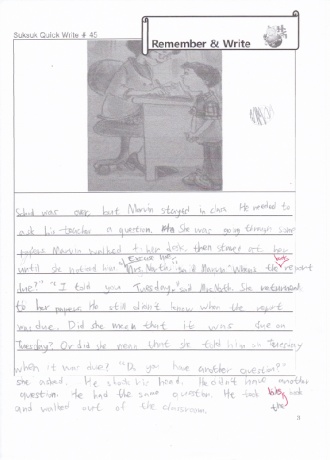 Suksuk Quick Write # 45
Remember & Write
School was over, but Marvin stayed in class. He needed to
ask his teacher a question. She was going through some
papers. Marvin walked to her desk, then stared at her
until she noticed him. "Excuse me, Mrs. North," said Marvin "When's the report
due?" "I told you Tuesday," said Mrs. North. She returned
to her papers. He still didn't know when the report
was due. Did she mean that it was due on
Tuesday? Or did she mean that she told him on Tuesday
when it was due? "Do you have another question?"
she asked. He shook his head. He didn't have another
question. He had the same question. He took
and walked out of the classroom.
the